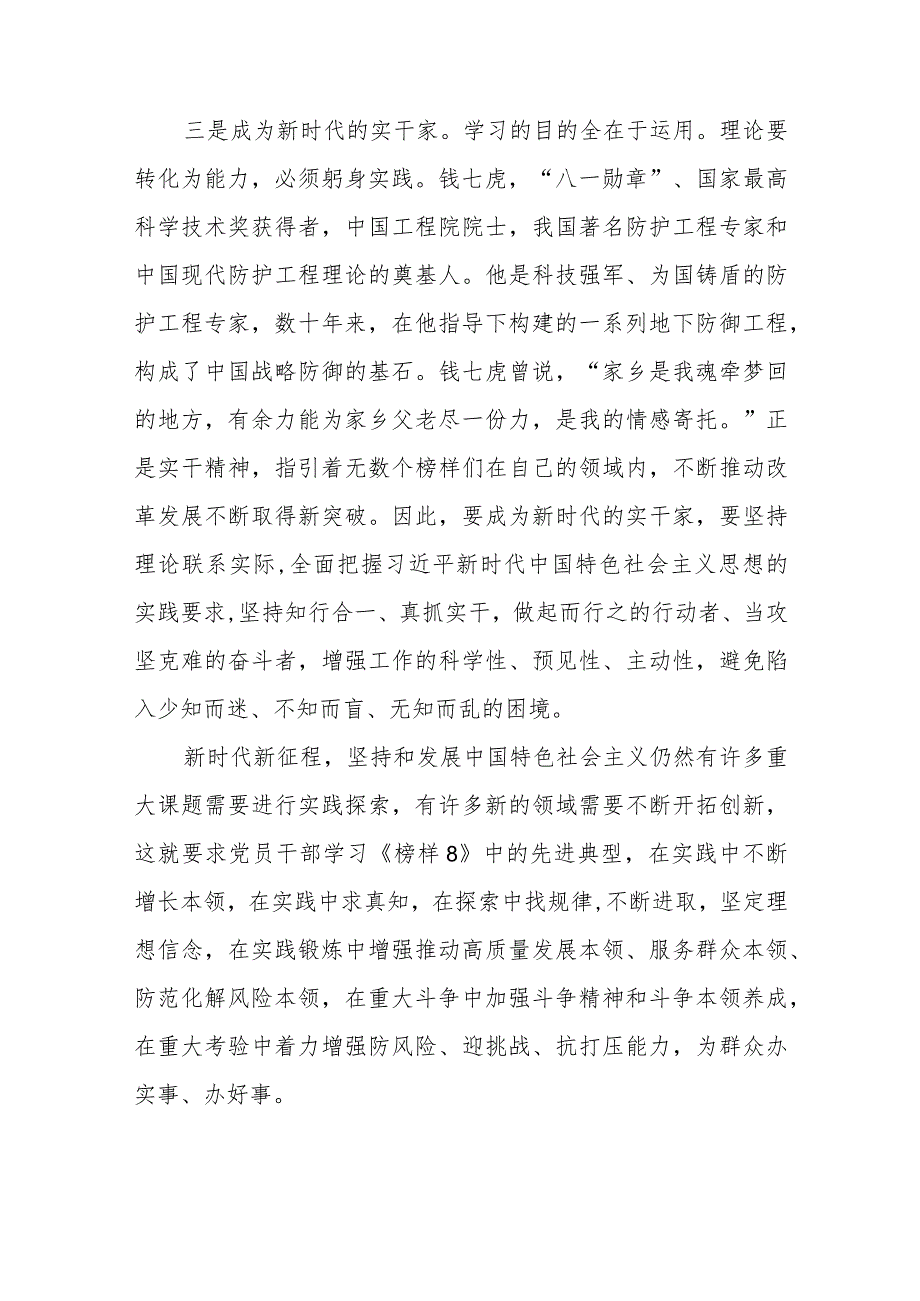 三是成为新时代的实干家。学习的目的全在于运用。理论要
转化为能力，必须躬身实践。钱七虎，“八一勋章”、国家最高
科学技术奖获得者，中国工程院院士，我国著名防护工程专家和
中国现代防护工程理论的奠基人。他是科技强军、为国铸盾的防
护工程专家，数十年来，在他指导下构建的一系列地下防御工程，
构成了中国战略防御的基石。钱七虎曾说，“家乡是我魂牵梦回
的地方，有余力能为家乡父老尽一份力，是我的情感寄托。”正
是实干精神，指引着无数个榜样们在自己的领域内，不断推动改
革发展不断取得新突破。因此，要成为新时代的实干家，要坚持
理论联系实际,全面把握习近平新时代中国特色社会主义思想的
实践要求,坚持知行合一、真抓实干，做起而行之的行动者、当攻
坚克难的奋斗者，增强工作的科学性、预见性、主动性，避免陷
入少知而迷、不知而盲、无知而乱的困境。
新时代新征程，坚持和发展中国特色社会主义仍然有许多重
大课题需要进行实践探索，有许多新的领域需要不断开拓创新，
这就要求党员干部学习《榜样 8》中的先进典型，在实践中不断
增长本领，在实践中求真知，在探索中找规律,不断进取，坚定理
想信念，在实践锻炼中增强推动高质量发展本领、服务群众本领、
防范化解风险本领，在重大斗争中加强斗争精神和斗争本领养成，
在重大考验中着力增强防风险、迎挑战、抗打压能力，为群众办
实事、办好事。